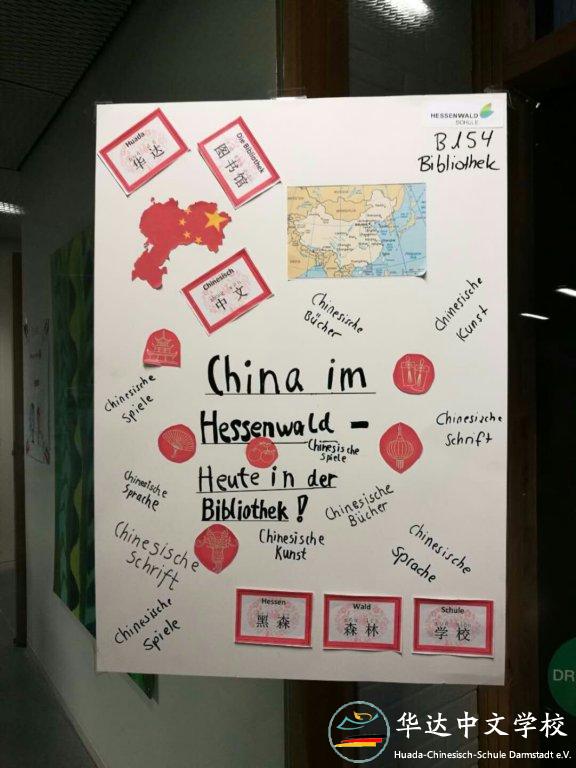 HESSENWALD
SCHULE
B154
Bibliothek
Huada
华达
Die Bibliothek
图书馆
Chinesisch
中文
Chinesische
Bücher
Chinesische
Kunst
China im
Hessenwald –
Heute in der
Bibliothek!
Chinesische
Spiele
Chinesische
Schrift
Chinesische
Spiele
Chinesische
Sprache
Chinesische
Bücher
Chinesische
Schrift
Chinesische
Kunst
Chinesische
Sprache
Chinesische
Spiele
Hessen
黑森
Wald
森林
Schule
学校
DR
华达中文学校
Huada-Chinesisch-Schule Darmstadt e.V.